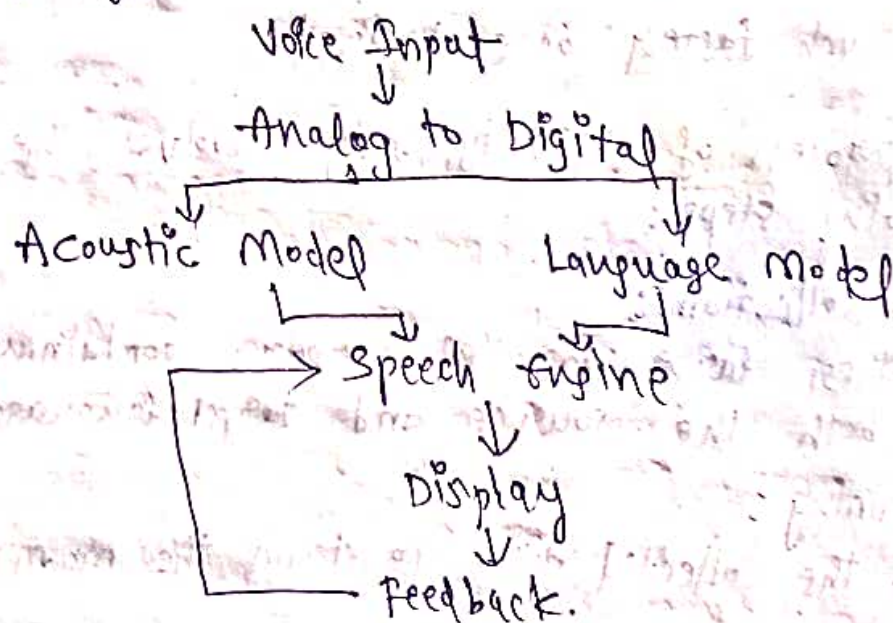 Voice Input
Analog to Digital
Acoustic Model Language Model
Speech Engine
Display
Feedback.